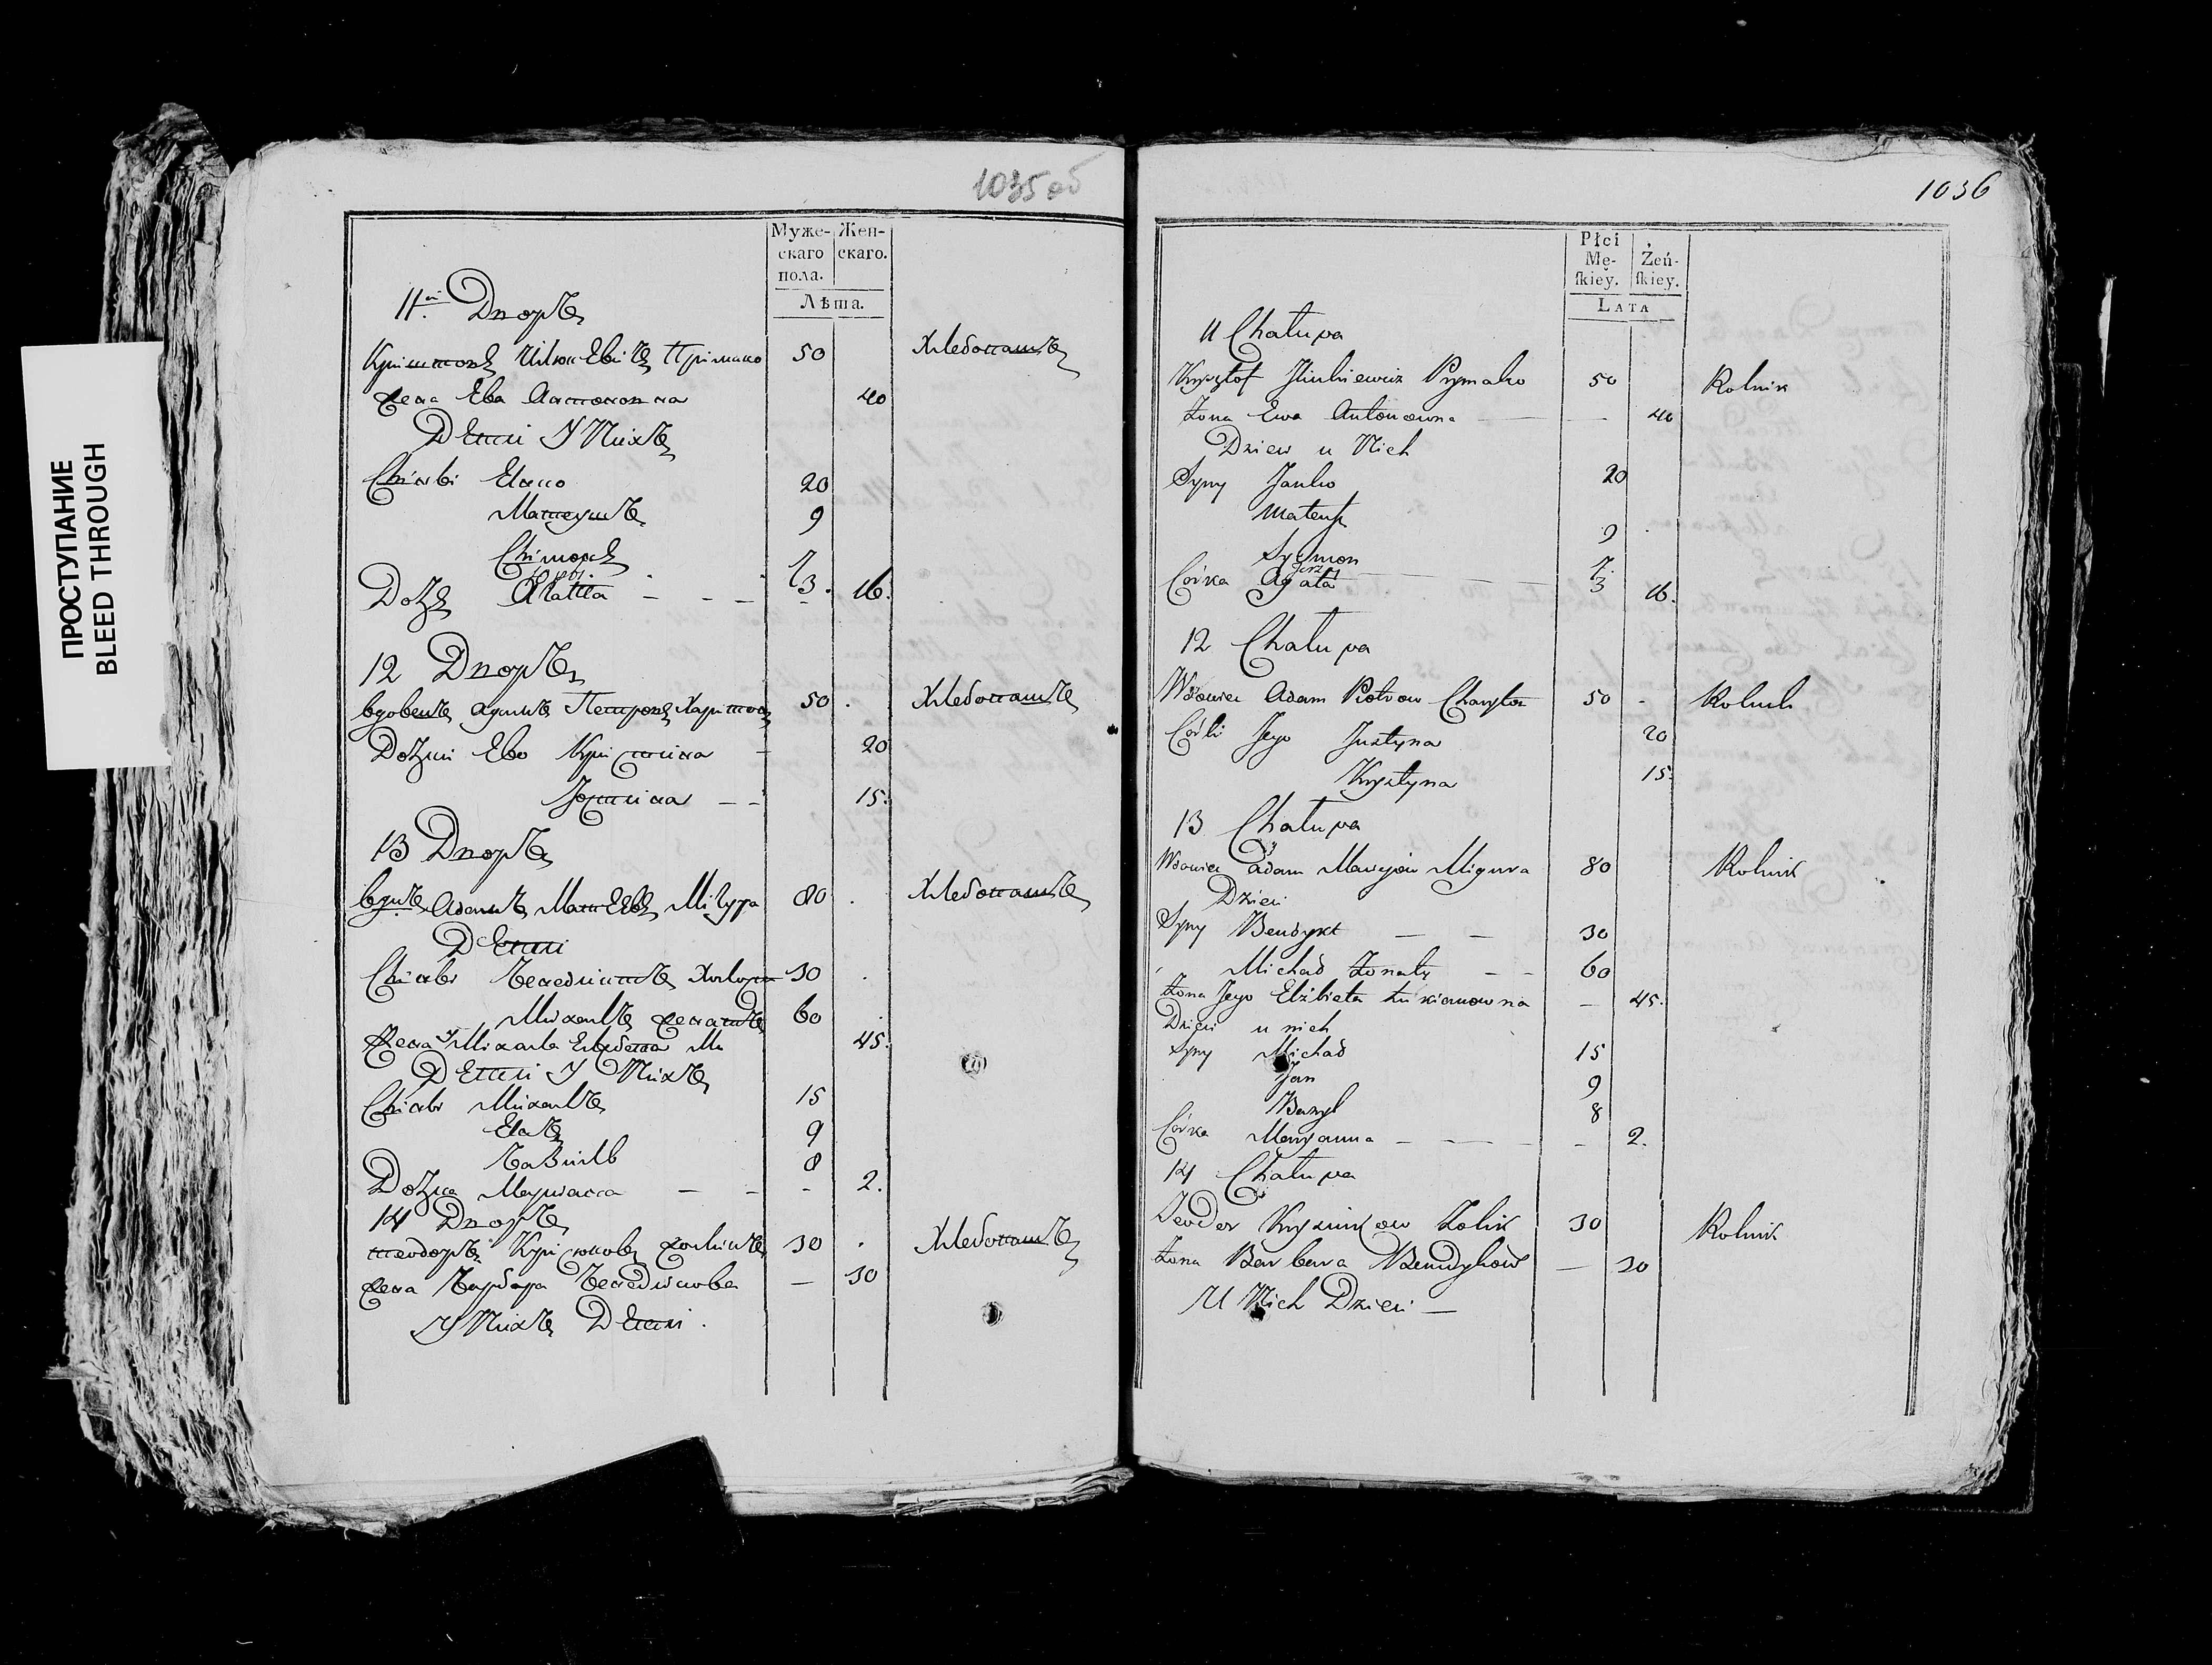 ПРОСТУПАНИЕ
BLEED THROUGH
1035 об
Муже-
скаго
пола.
Жен-
скаго.
Лѣта.
11й Дворъ
50 Хлебопашъ
жена Ева Антоновна 40
Дети У Нихъ
Сыны Янко 20
Матеушъ 9
7
3.
Дочь Агата — — — 16.
12 Дворъ
Вдовецъ Адамъ Петровъ Харитон 50 Хлебопашъ
Дочки Ево Кристина — 20
Юстина — — 15.
13 Дворъ
Адамъ Матеевъ Мигура 80 Хлебопашъ
Дети
Сыны Бенедиктъ 30
Михалъ женатъ 60
жена Михала Елжбета 45.
Дети У Нихъ
Сыны Михалъ 15
Янъ 9
Базиль 8
Дочка Марианна — — — 2.
14 Дворъ
теодоръ 30 Хлебопашъ
жена Барбара Бенедикова — 30
У Нихъ Дети.
1036
Płci
Mę-
skiey.
Żeń-
skiey.
LATA
11 Chałupa
Krysztof Iliukiewicz Prymako 50 Rolnik
Żona Ewa Antonowna — — 40
Dzieci u Nich
Syny Janko 20
Mateusz 9
Szymon 7.
Jerzy 3
Corka Agata 16.
12 Chałupa
Wdowiec Adam Piotrow Charyton 50 - Rolnik
Corki Jego Justyna 20
Krystyna 15.
13 Chałupa
Wdowiec Adam Mateyów Migura 80 Rolnik
Dzieci
Syny Benedykt — — 30
Michał Żonaty — — 60
Żona Jego Elżbieta Łukianowna — 45.
Dzieci u nich
Syny Michał 15
Jan 9
Bazyl 8
Córka Maryanna — — — 2.
14 Chałupa
Teodor 30 Rolnik
Żona Barbara Benedyków — 30
U Nich Dzieci —